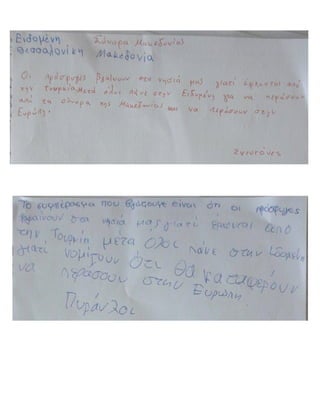 Ειδομένη Σύνορα Μακεδονίας
Θεσσαλονίκη Μακεδονία
Οι πρόσφυγες βγαίνουν στα νησιά μας γιατί έρχονται από
την Τουρκία. Μετά όλοι πάνε στην Ειδομένη για να περάσουν
από τα σύνορα της Μακεδονίας και να περάσουν στην
Ευρώπη.
Το συμπέρασμα που βγάζουμε είναι ότι οι πρόσφυγες
βγαίνουν στα νησιά μας γιατί έρχονται από
την Τουρκία μετά όλοι πάνε στην Ειδομένη
γιατί νομίζουν ότι θα καταφέρουν
να περάσουν στην Ευρώπη.